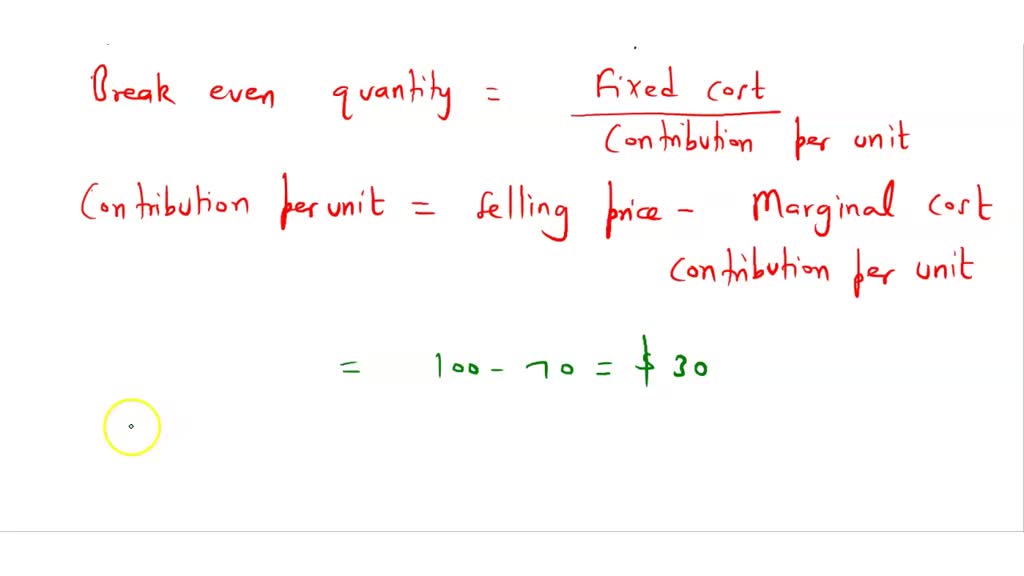 Break even quantity = Fixed cost
Contribution per unit
Contribution per unit = Selling price - Marginal cost
contribution per unit
= 100 - 70 = $ 30